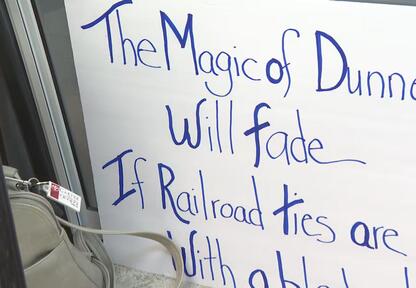 The Magic of Dunne
Will fade
If Railroad ties are
With